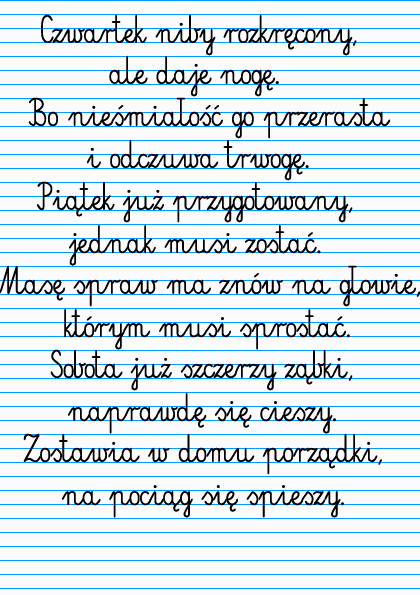 Czwartek niby rozkręcony,
ale daje nogę.
Bo nieśmiałość go przerasta
i odczuwa trwogę.
Piątek już przygotowany,
jednak musi zostać.
Masę spraw ma znów na głowie,
którym musi sprostać.
Sobota już szczerzy ząbki,
naprawdę się cieszy.
Zostawia w domu porządki,
na pociąg się spieszy.